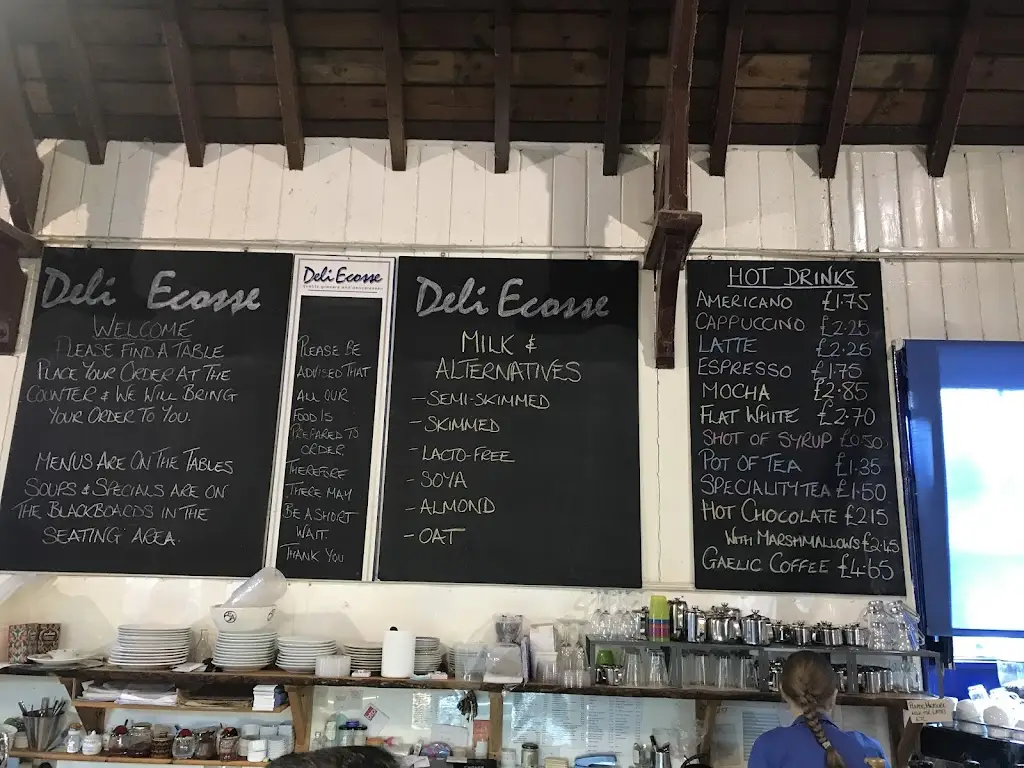 Deli Ecosse
WELCOME
PLEASE FIND A TABLE
PLACE YOUR ORDER AT THE
COUNTER & WE WILL BRING
YOUR ORDER TO YOU.
MENUS ARE ON THE TABLES
SOUPS & SPECIALS ARE ON
THE BLACKBOARDS IN THE
SEATING AREA.
Deli Ecosse
PLEASE BE
ADVISED THAT
ALL OUR
FOOD IS
PREPARED TO
ORDER
THEREFORE
THERE MAY
BE A SHORT
WAIT.
THANK YOU
Deli Ecosse
MILK &
ALTERNATIVES
- SEMI-SKIMMED
- SKIMMED
- LACTO-FREE
- SOYA
- ALMOND
- OAT
HOT DRINKS
AMERICANO £1.75
CAPPUCCINO £2.25
LATTE £2.25
ESPRESSO £1.75
MOCHA £2.85
FLAT WHITE £2.70
SHOT OF SYRUP £0.50
POT OF TEA £1.35
SPECIALITY TEA £1.50
HOT CHOCOLATE £2.15
WITH MARSHMALLOWS £2.45
GAELIC COFFEE £4.65